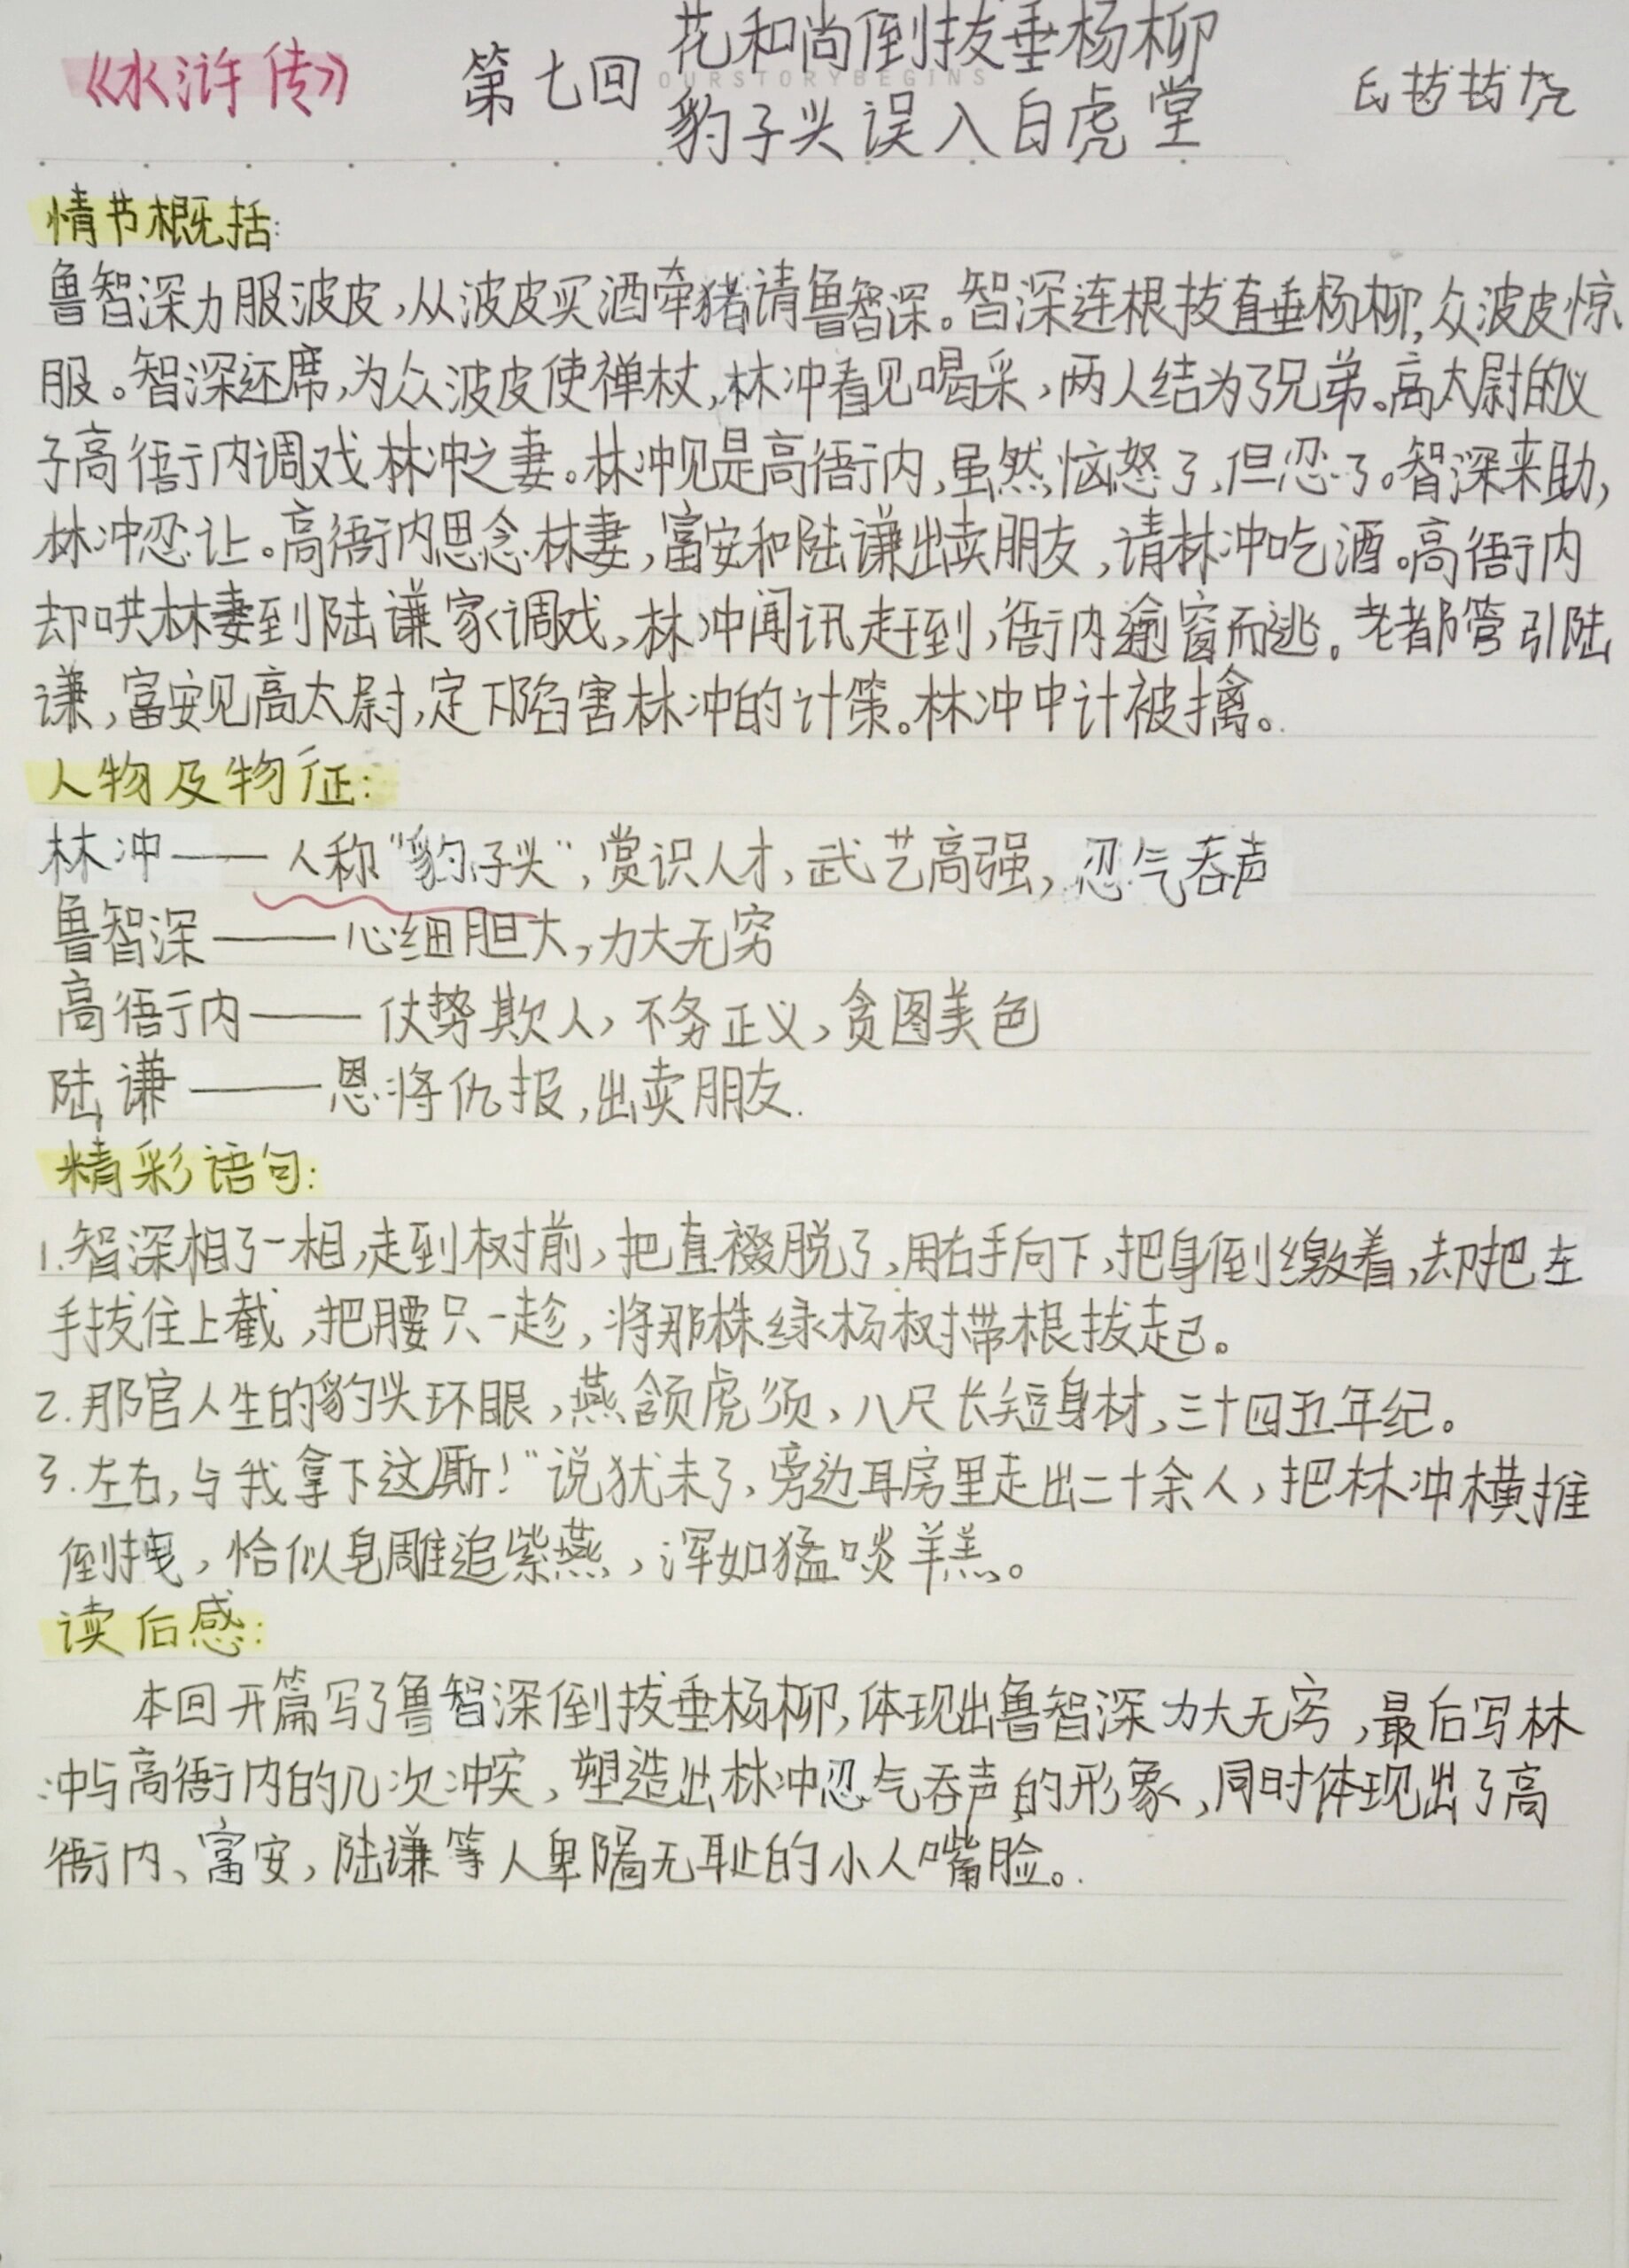 《水浒传》 第七回 花和尚倒拔垂杨柳
OURSTORYBEGINS
豹子头误入白虎堂
情节概括:
鲁智深力服波皮,从波皮买酒牵猪请鲁智深。智深连根拔直垂杨柳,众波皮惊
服。智深还席,为众波皮使禅杖,林冲看见喝采,两人结为了兄弟。高太尉的义
子高衙内调戏林冲之妻。林冲见是高衙内,虽然恼怒了,但忍了。智深来助,
林冲忍让。高衙内思念林妻,富安和陆谦出卖朋友,请林冲吃酒。高衙内
却哄林妻到陆谦家调戏,林冲闻讯赶到,衙内逾窗而逃。老都管引陆
谦,富安见高太尉,定下陷害林冲的计策。林冲中计被擒。
人物及物征:
林冲——人称"豹子头",赏识人才,武艺高强,忍气吞声
鲁智深——心细胆大,力大无穷
高衙内——仗势欺人,不务正义,贪图美色
陆谦——恩将仇报,出卖朋友.
精彩语句:
1.智深相了一相,走到树前,把直裰脱了,用右手向下,把身倒缴着,却把左
手拔住上截,把腰只一趁,将那株绿杨树带根拔起。
2.那官人生的豹头环眼,燕颔虎须,八尺长短身材,三十四五年纪。
3.左右,与我拿下这厮!"说犹未了,旁边耳房里走出二十余人,把林冲横推
倒拽,恰似皂雕追紫燕,浑如猛啖羊羔。
读后感:
本回开篇写了鲁智深倒拔垂杨柳,体现出鲁智深力大无穷,最后写林
冲与高衙内的几次冲突,塑造出林冲忍气吞声的形象,同时体现出了高
衙内、富安,陆谦等人卑陋无耻的小人嘴脸。